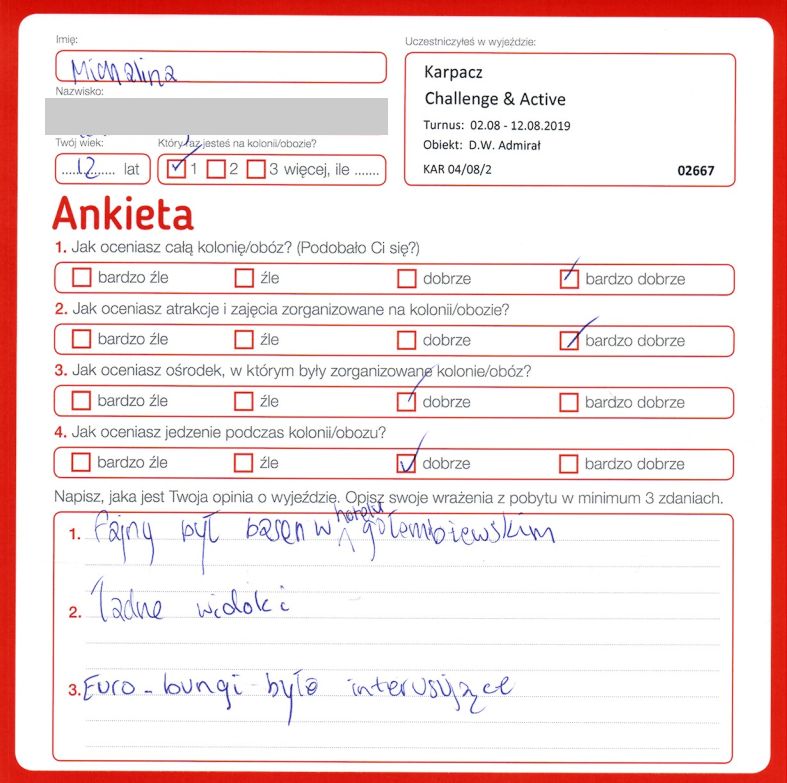 Imię:
Michalina
Nazwisko:
Twój wiek:
12 lat
Który raz jesteś na kolonii/obozie?
1 2 3 więcej, ile .......
Uczestniczyłeś w wyjeździe:
Karpacz
Challenge & Active
Turnus: 02.08 - 12.08.2019
Obiekt: D.W. Admirał
KAR 04/08/2 02667
Ankieta
1. Jak oceniasz całą kolonię/obóz? (Podobało Ci się?)
bardzo źle źle dobrze bardzo dobrze
2. Jak oceniasz atrakcje i zajęcia zorganizowane na kolonii/obozie?
bardzo źle źle dobrze bardzo dobrze
3. Jak oceniasz ośrodek, w którym były zorganizowane kolonie/obóz?
bardzo źle źle dobrze bardzo dobrze
4. Jak oceniasz jedzenie podczas kolonii/obozu?
bardzo źle źle dobrze bardzo dobrze
Napisz, jaka jest Twoja opinia o wyjeździe. Opisz swoje wrażenia z pobytu w minimum 3 zdaniach.
1. fajny był basen w hotelu gołembiewskim
2. Ładne widoki
3. Euro-bungi było interusujące